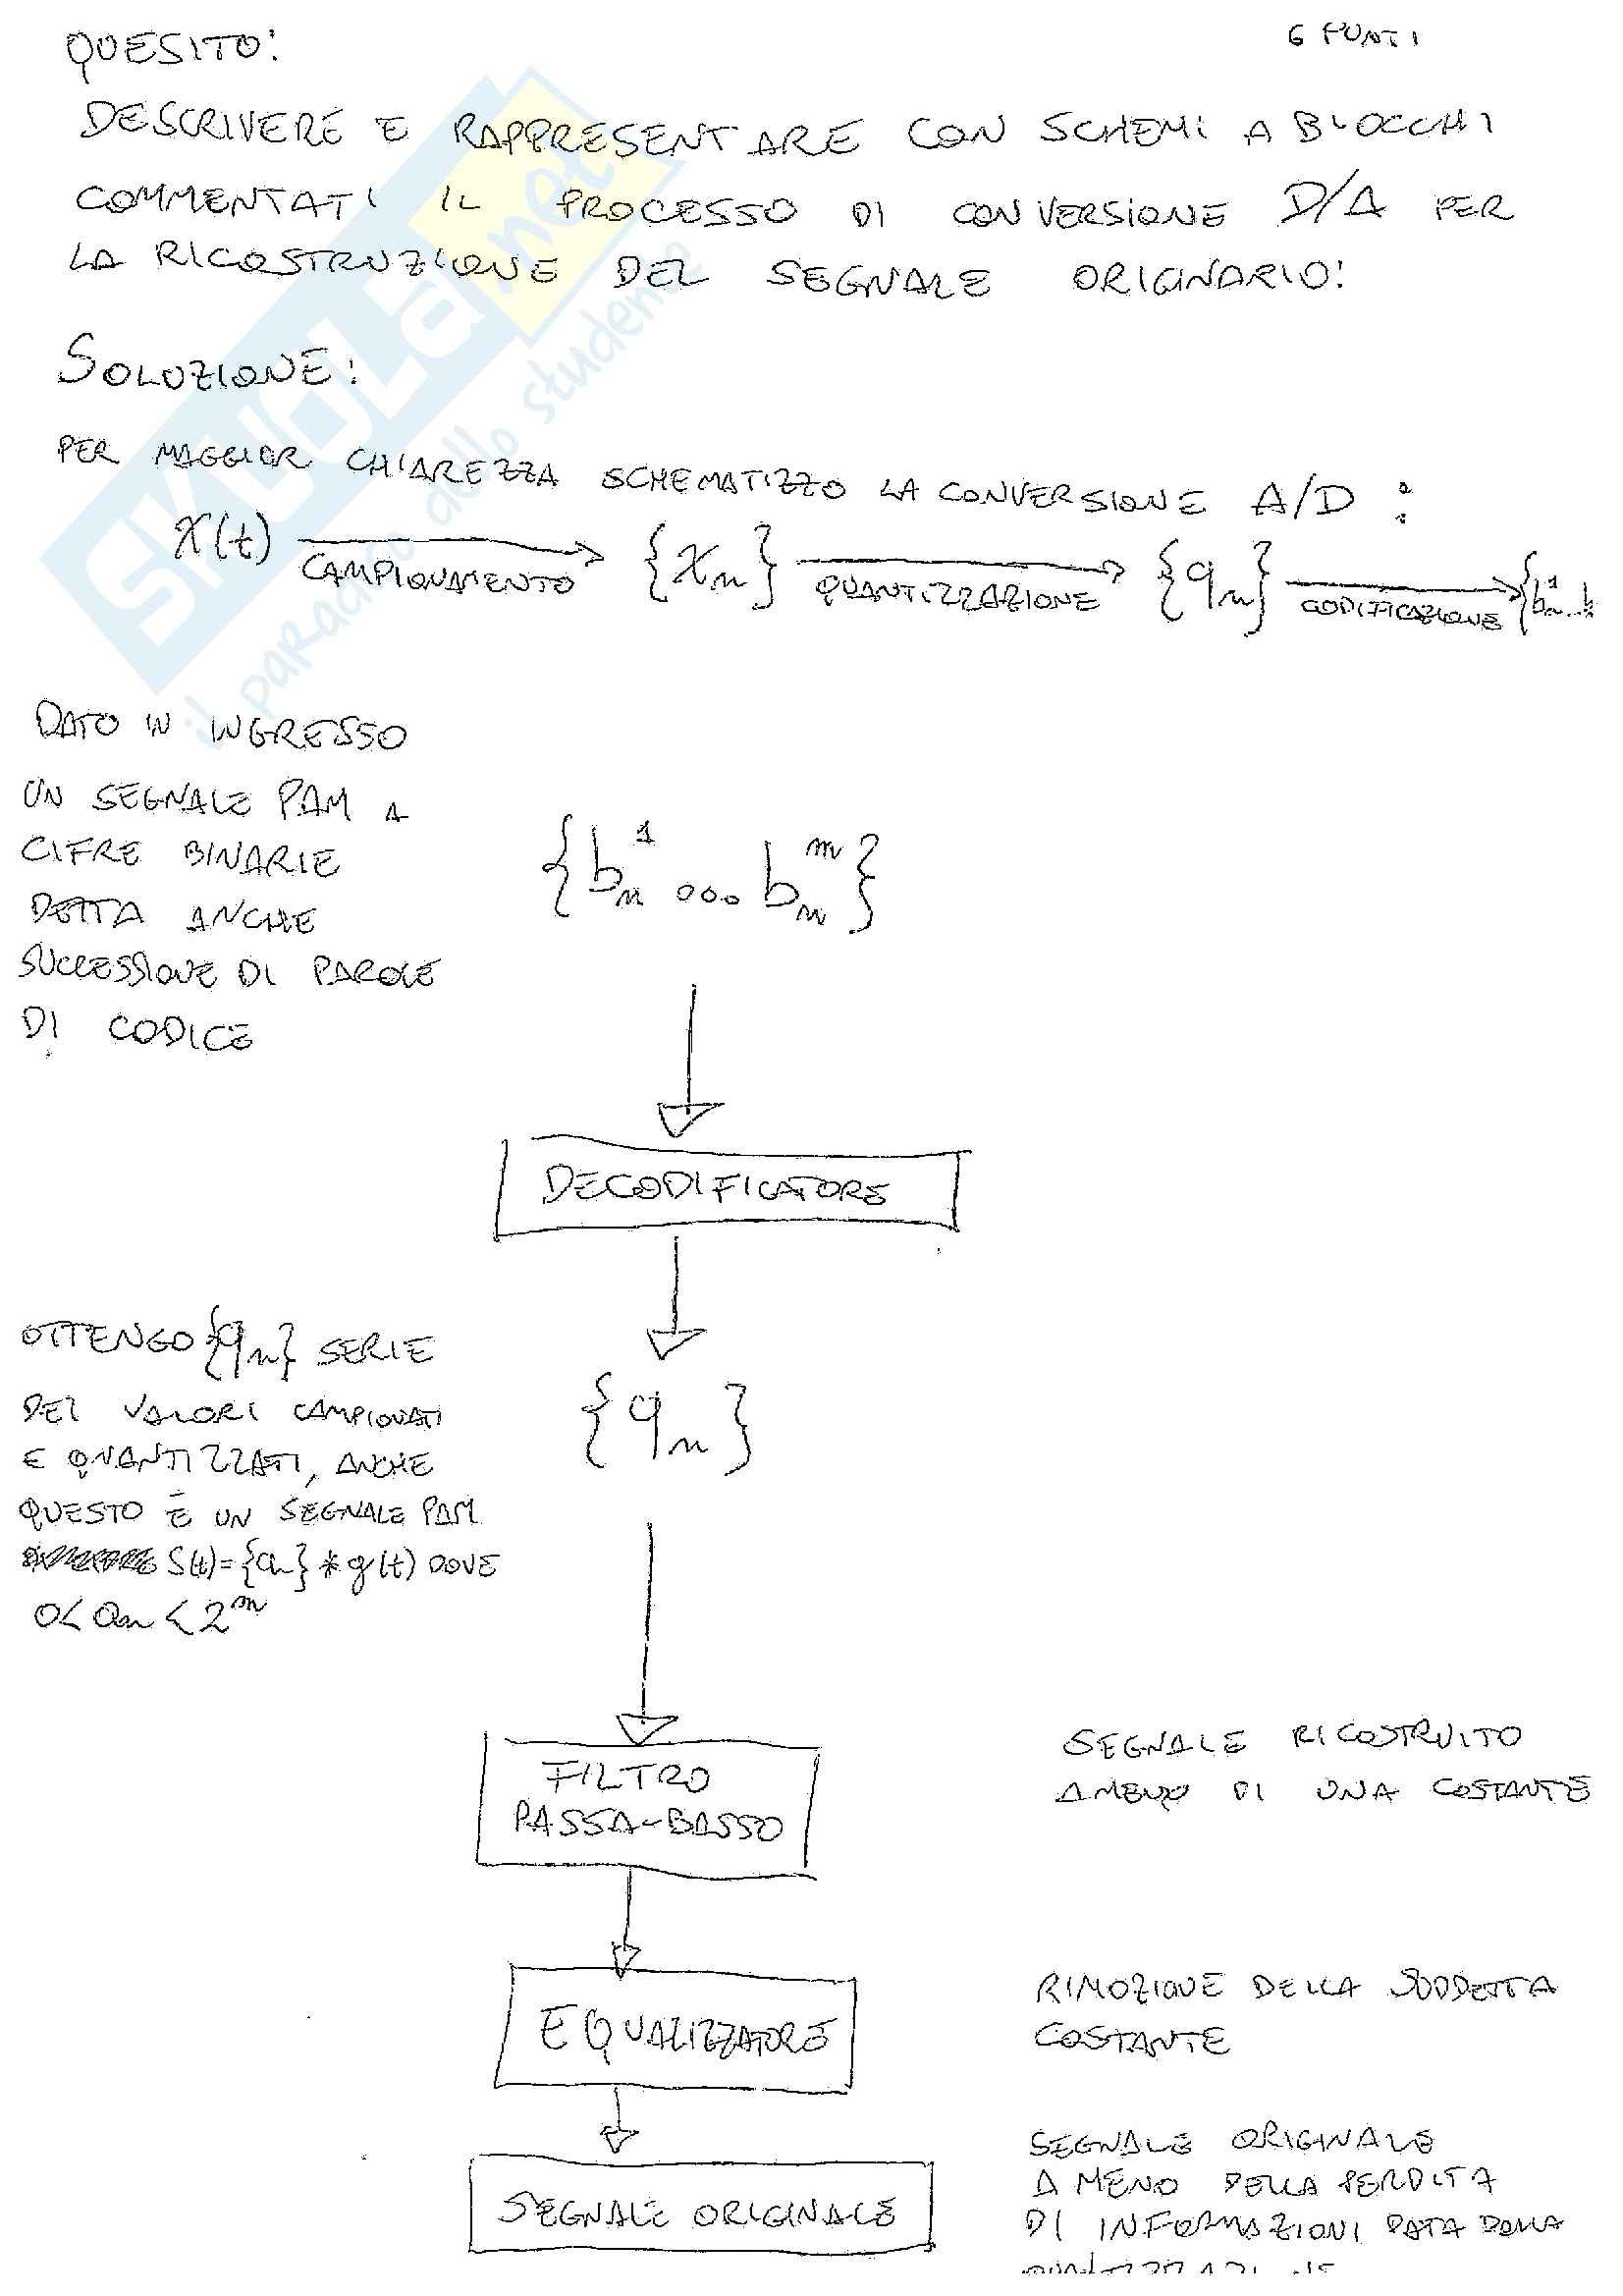 QUESITO: 6 PUNTI
DESCRIVERE E RAPPRESENTARE CON SCHEMI A BLOCCHI
COMMENTATI IL PROCESSO DI CONVERSIONE D/A PER
LA RICOSTRUZIONE DEL SEGNALE ORIGINARIO:
SOLUZIONE:
PER MAGGIOR CHIAREZZA SCHEMATIZZO LA CONVERSIONE A/D :
x(t) CAMPIONAMENTO {xn} QUANTIZZAZIONE {qn} CODIFICAZIONE {bn^1...b
SKUOLA.net
il paradiso dello studente
DATO IN INGRESSO
UN SEGNALE PAM A
CIFRE BINARIE
DETTA ANCHE
SUCCESSIONE DI PAROLE
DI CODICE
{bn^1 ... bn^m}
DECODIFICATORE
OTTENGO {qn} SERIE
DEI VALORI CAMPIONATI
E QUANTIZZATI, ANCHE
QUESTO È UN SEGNALE PAM
S(t)={an}*g(t) DOVE
0<an<2^m
{qn}
FILTRO
PASSA-BASSO
SEGNALE RICOSTRUITO
A MENO DI UNA COSTANTE
EQUALIZZATORE
RIMOZIONE DELLA SUDDETTA
COSTANTE
SEGNALE ORIGINALE
SEGNALE ORIGINALE
A MENO DELLA PERDITA
DI INFORMAZIONI DATA DALLA
QUANTIZZAZIONE